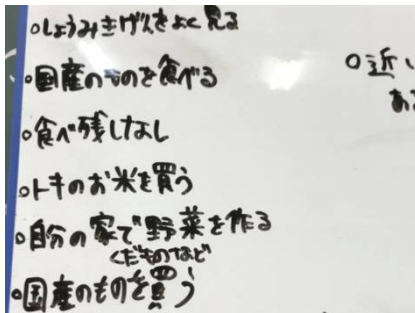 ○しょうみきげんをよく見る
○国産のものを食べる
○食べ残しなし
○トキのお米を買う
○自分の家で野菜を作る
くだものなど
○国産のものを買う
○近い
ある